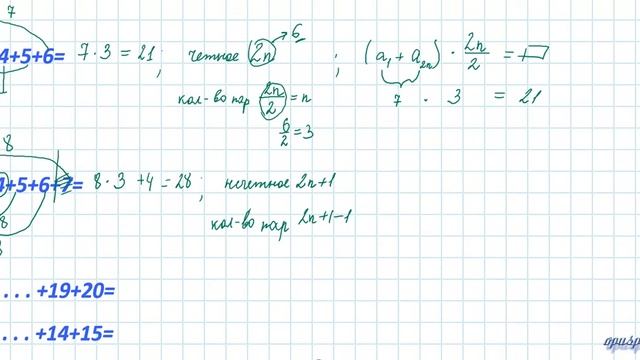 7
4+5+6= 7·3=21; четное 2n → 6; (a₁ + a₂ₙ) · 2n/2 =
кол-во пар 2n/2 = n 7 · 3 = 21
6/2 = 3
8
4+5+6+7= 8·3+4=28; нечетное 2n+1
8 кол-во пар 2n+1-1
...+19+20=
...+14+15=